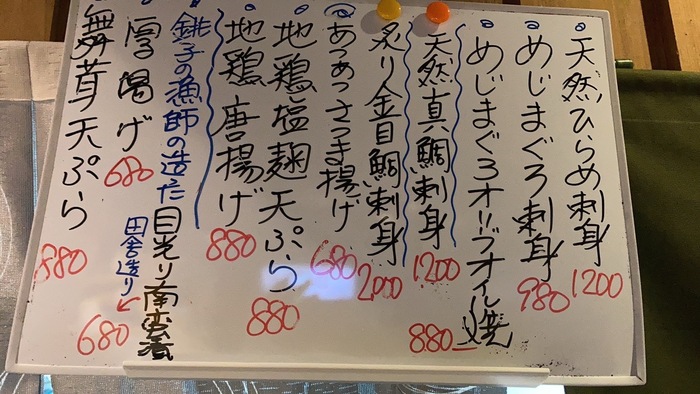 天然ひらめ刺身 1200
めじまぐろ刺身 980
めじまぐろオリーブオイル焼 880
天然真鯛刺身 1200
炙り金目鯛刺身 2000
あつあつさつま揚げ 680
地鶏塩麹天ぷら 880
地鶏唐揚げ 880
銚子の漁師の造った目光り南蛮着
田舎造り 680
厚揚げ 680
舞茸天ぷら 880